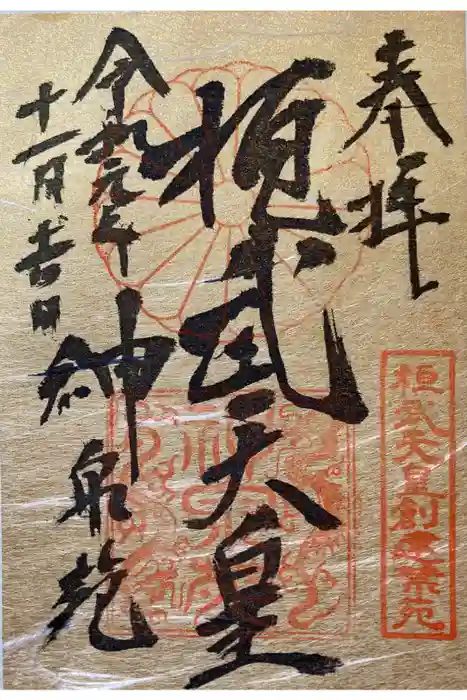 奉拝
桓武天皇創建禁苑
桓武天皇
神泉苑
令和元年
十一月吉日